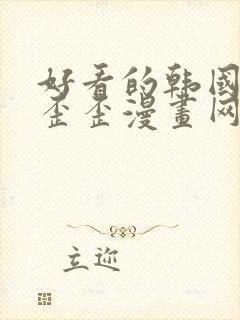 好看的韩國
歪歪漫畫网
立迩